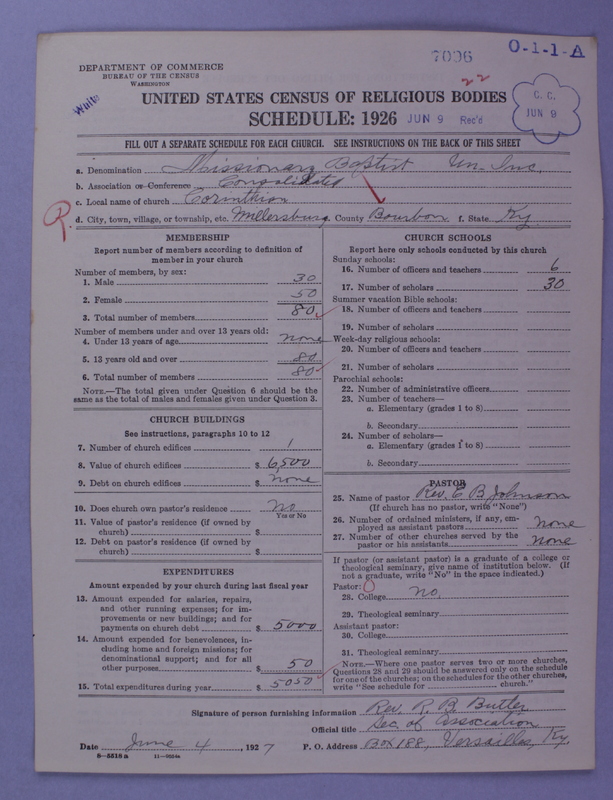 7096
O-1-1-A
DEPARTMENT OF COMMERCE
BUREAU OF THE CENSUS
WASHINGTON
22
White
UNITED STATES CENSUS OF RELIGIOUS BODIES
C. C.
JUN 9
SCHEDULE: 1926 JUN 9 Rec'd
FILL OUT A SEPARATE SCHEDULE FOR EACH CHURCH. SEE INSTRUCTIONS ON THE BACK OF THIS SHEET
a. Denomination Missionary Baptist Un. Inc.
b. Association or Conference Consolidated
c. Local name of church Corinthian
d. City, town, village, or township, etc. Millersburg. County Bourbon f. State Ky.
MEMBERSHIP
Report number of members according to definition of
member in your church
Number of members, by sex:
1. Male 30
2. Female 50
3. Total number of members 80
Number of members under and over 13 years old:
4. Under 13 years of age none
5. 13 years old and over 80
6. Total number of members 80
NOTE.—The total given under Question 6 should be the
same as the total of males and females given under Question 3.
CHURCH BUILDINGS
See instructions, paragraphs 10 to 12
7. Number of church edifices 1
8. Value of church edifices $ 6,500
9. Debt on church edifices $ none
10. Does church own pastor's residence no
Yes or No
11. Value of pastor's residence (if owned by
church) $
12. Debt on pastor's residence (if owned by
church) $
EXPENDITURES
Amount expended by your church during last fiscal year
13. Amount expended for salaries, repairs,
and other running expenses; for im-
provements or new buildings; and for
payments on church debt $ 5000
14. Amount expended for benevolences, in-
cluding home and foreign missions; for
denominational support; and for all
other purposes $ 50
15. Total expenditures during year $ 5050
CHURCH SCHOOLS
Report here only schools conducted by this church
Sunday schools:
16. Number of officers and teachers 6
17. Number of scholars 30
Summer vacation Bible schools:
18. Number of officers and teachers
19. Number of scholars
Week-day religious schools:
20. Number of officers and teachers
21. Number of scholars
Parochial schools:
22. Number of administrative officers
23. Number of teachers—
a. Elementary (grades 1 to 8)
b. Secondary
24. Number of scholars—
a. Elementary (grades 1 to 8)
b. Secondary
PASTOR
25. Name of pastor Rev. E B Johnson
(If church has no pastor, write "None")
26. Number of ordained ministers, if any, em-
ployed as assistant pastors none
27. Number of other churches served by the
pastor or his assistants none
If pastor (or assistant pastor) is a graduate of a college or
theological seminary, give name of institution below. (If
not a graduate, write "No" in the space indicated.)
Pastor: 0
28. College no.
29. Theological seminary
Assistant pastor:
30. College
31. Theological seminary
NOTE.—Where one pastor serves two or more churches,
Questions 28 and 29 should be answered only on the schedule
for one of the churches; on the schedules for the other churches,
write "See schedule for church."
Signature of person furnishing information Rev. R. B. Butler
Official title Sec. of Association
Date June 4, 1927 P. O. Address Box 188, Versailles, Ky.